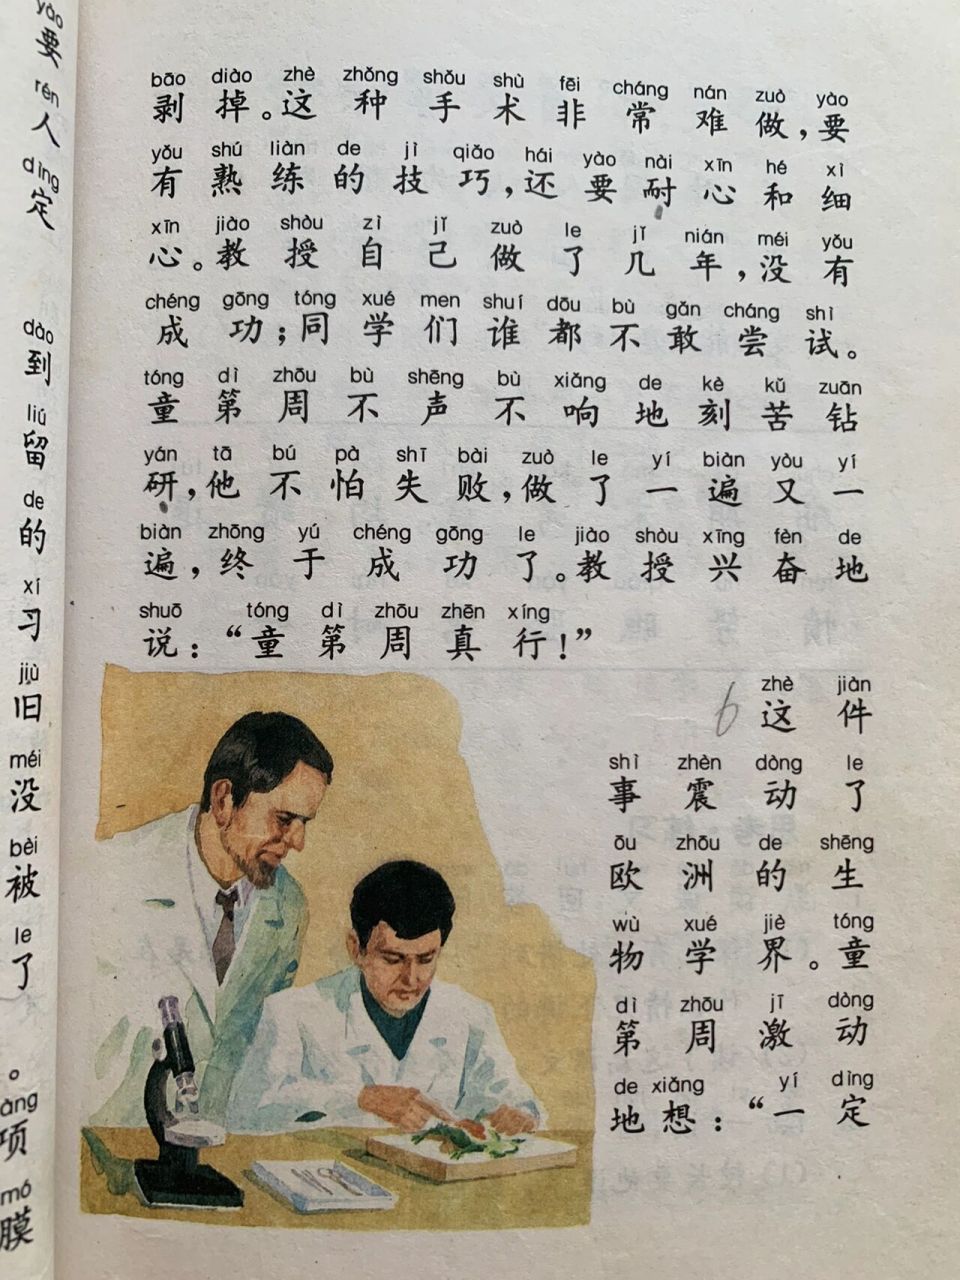 yào
要
rén
人
dìng
定
dào
到
liú
留
de
的
xí
习
jiù
旧
méi
没
bèi
被
le
了
。
àng
项
mó
膜
bāo diào zhè zhǒng shǒu shù fēi cháng nán zuò yào
剥掉。这种手术非常难做，要
yǒu shú liàn de jì qiǎo hái yào nài xīn hé xì
有熟练的技巧，还要耐心和细
xīn jiào shòu zì jǐ zuò le jǐ nián méi yǒu
心。教授自己做了几年，没有
chéng gōng tóng xué men shuí dōu bù gǎn cháng shì
成功；同学们谁都不敢尝试。
tóng dì zhōu bù shēng bù xiǎng de kè kǔ zuān
童第周不声不响地刻苦钻
yán tā bú pà shī bài zuò le yí biàn yòu yí
研，他不怕失败，做了一遍又一
biàn zhōng yú chéng gōng le jiào shòu xīng fèn de
遍，终于成功了。教授兴奋地
shuō tóng dì zhōu zhēn xíng
说：“童第周真行！”
zhè jiàn
6 这件
shì zhèn dòng le
事震动了
ōu zhōu de shēng
欧洲的生
wù xué jiè tóng
物学界。童
dì zhōu jī dòng
第周激动
de xiǎng yí dìng
地想：“一定